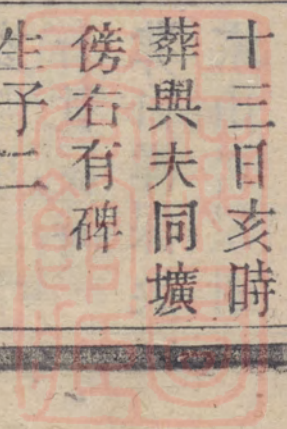 十三日亥時
葬與夫同壙
傍右有碑
生子二